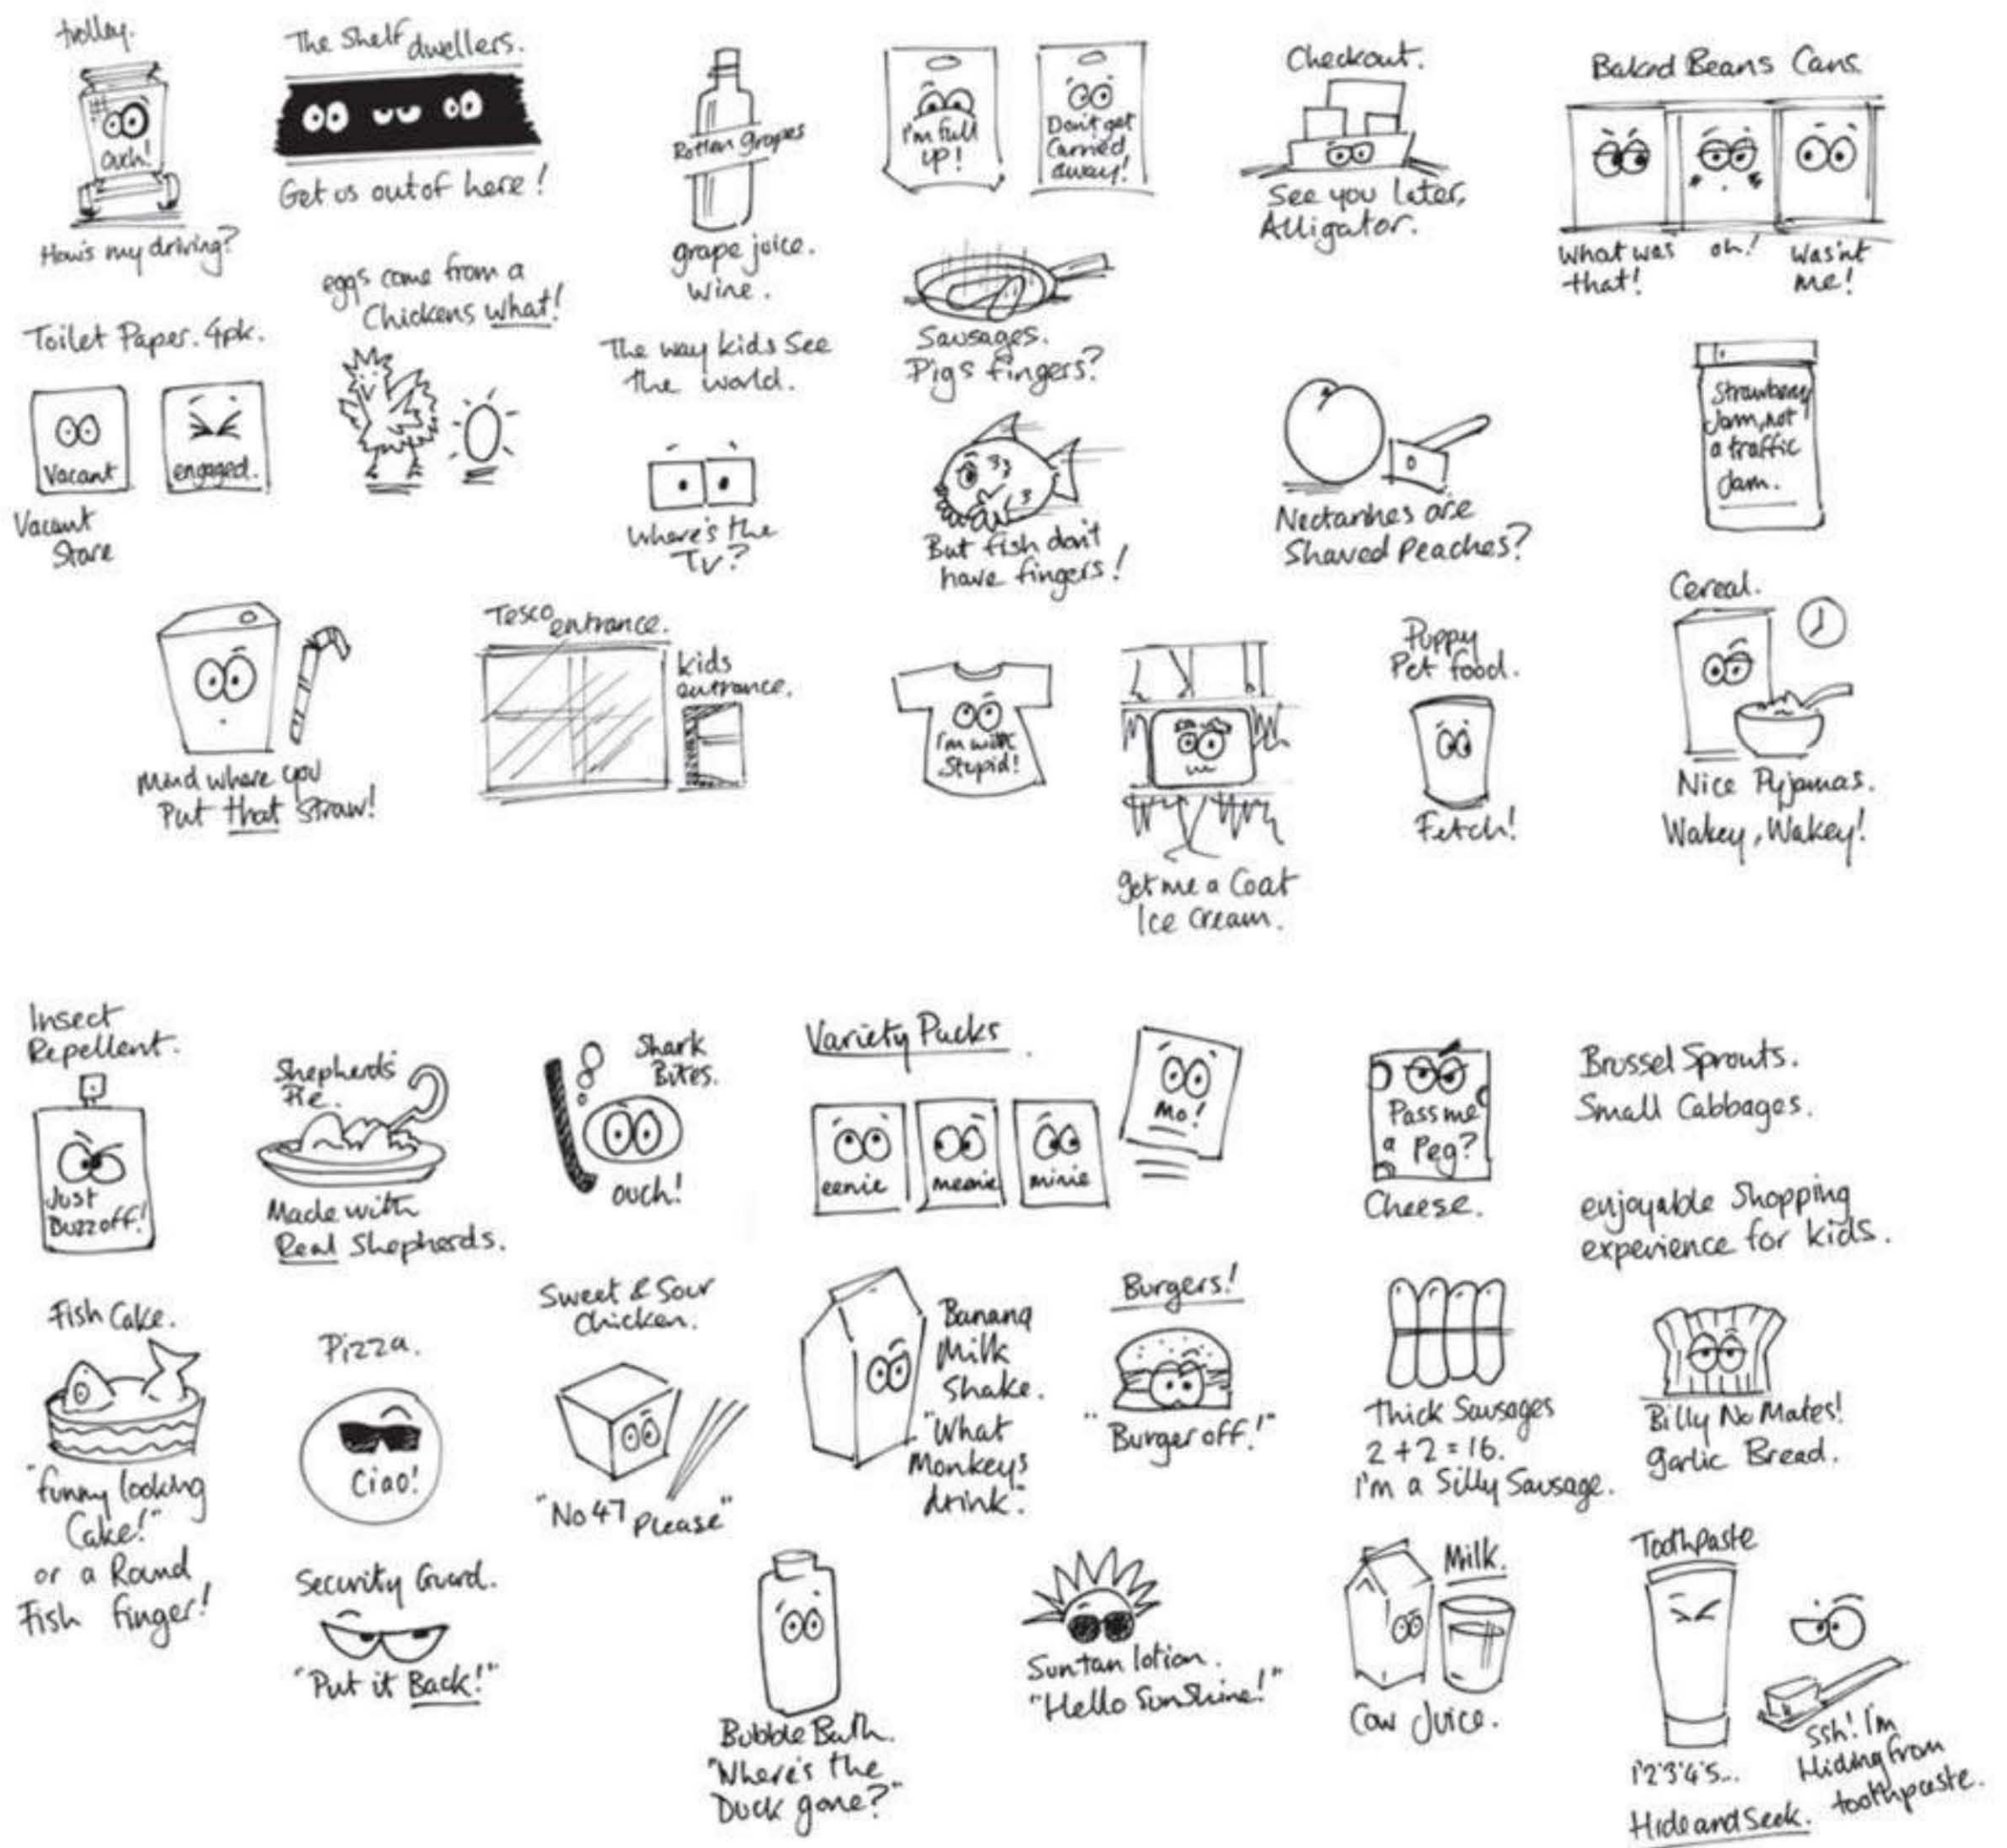 trolley.
Ouch!
How's my driving?
The Shelf dwellers.
Get us out of here!
Rotten grapes
grape juice.
wine.
I'm full
up!
Don't get
Carried
away!
Checkout.
See you later,
Alligator.
Baked Beans Cans
What was
that!
oh!
Wasn't
me!
Toilet Paper. 4pk.
Vacant
engaged.
Vacant
Stare
eggs come from a
Chickens what!
The way kids See
the world.
Where's the
TV?
Sausages.
Pigs fingers?
But fish don't
have fingers!
Nectarines are
Shaved Peaches?
Strawberry
Jam, not
a traffic
Jam.
Mind where you
Put that Straw!
Tesco entrance.
kids
entrance.
I'm with
Stupid!
get me a Coat
Ice Cream.
Puppy
Pet food.
Fetch!
Cereal.
Nice Pyjamas.
Wakey, Wakey!
Insect
Repellent.
Just
Buzz off!
Shepherds
Pie.
Made with
Real Shepherds.
Shark
Bites.
ouch!
Variety Packs.
eenie
meenie
minie
Mo!
Pass me
a Peg?
Cheese.
Brussel Sprouts.
Small Cabbages.
enjoyable Shopping
experience for kids.
Fish Cake.
"funny looking
Cake!"
or a Round
Fish finger!
Pizza.
Ciao!
Sweet & Sour
Chicken.
"No 47 Please"
Banana
Milk
Shake.
"What
Monkeys
drink".
Burgers!
"Burger off!"
Thick Sausages
2+2=16.
I'm a Silly Sausage.
Billy No Mates!
garlic Bread.
Security Guard.
"Put it Back!"
Bubble Bath.
"Where's the
Duck gone?"
Suntan lotion.
"Hello Sunshine!"
Milk.
Cow Juice.
Toothpaste
1'2'3'4'5...
Hide and Seek.
Ssh! I'm
Hiding from
toothpaste.